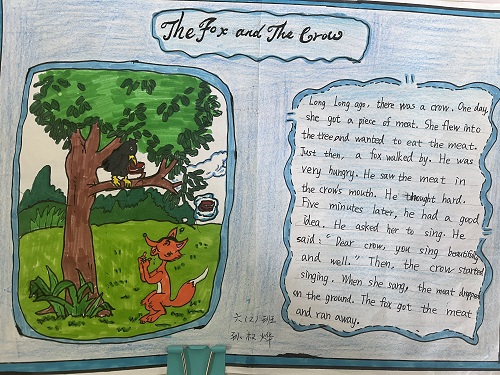 The Fox and The Crow
Long Long ago, there was a crow. One day,
she got a piece of meat. She flew into
the tree and wanted to eat the meat.
Just then, a fox walked by. He was
very hungry. He saw the meat in
the crow's mouth. He thought hard.
Five minutes later, he had a good
idea. He asked her to sing. He
said: "Dear crow, you sing beautifully
and well." Then, the crow started
singing. When she sang, the meat dropped
on the ground. The fox got the meat
and ran away.
六(2)班
孙权烨